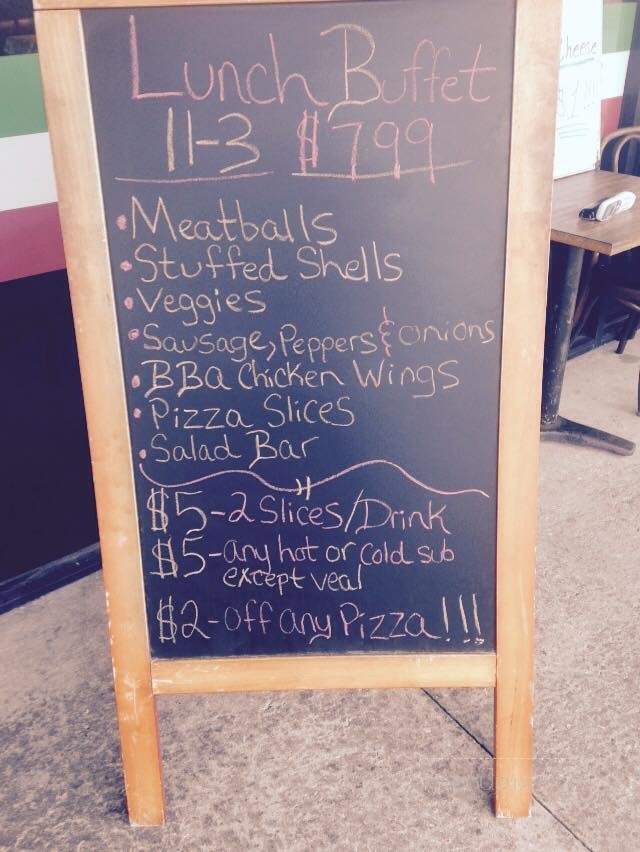 Lunch Buffet
11-3 $7.99
• Meatballs
• Stuffed Shells
• Veggies
• Sausage, Peppers & onions
• BBQ Chicken Wings
• Pizza Slices
• Salad Bar
$5-2 Slices/Drink
$5-any hot or cold sub
except veal
$2-off any Pizza!!!
cheese